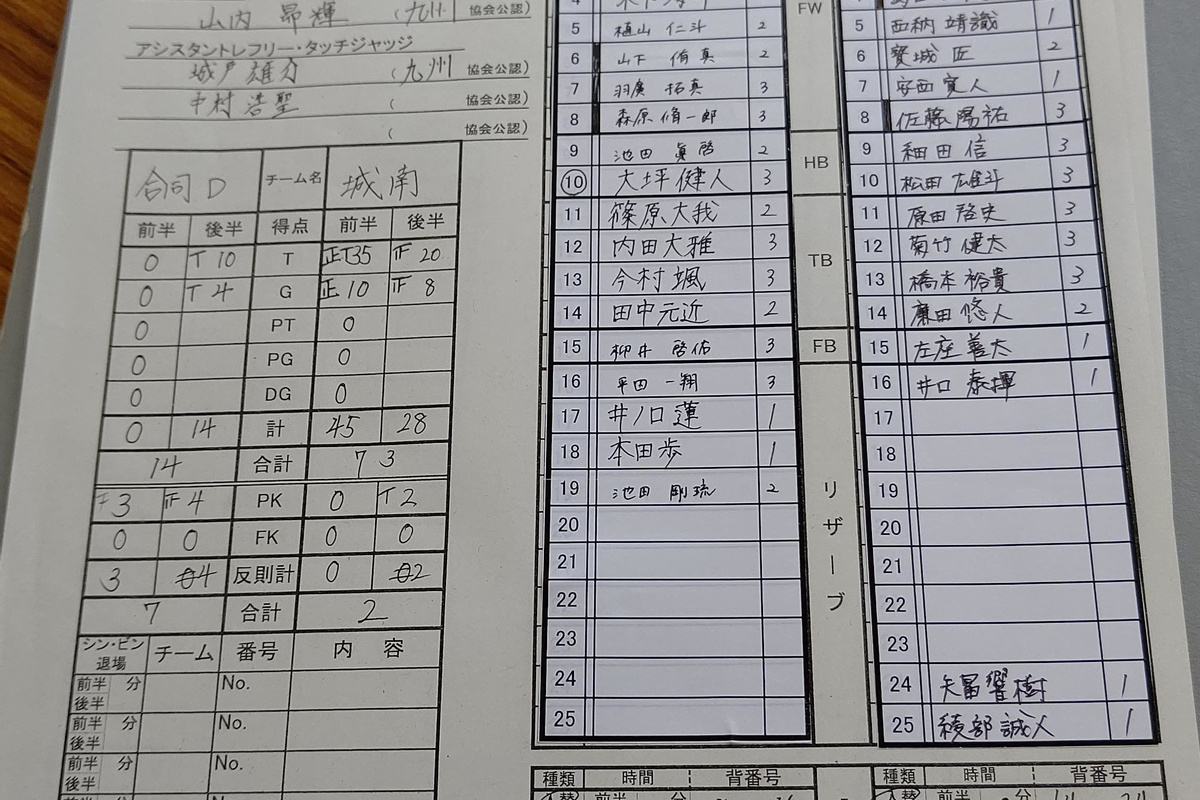 山内 昂輝 (九州 協会公認)
アシスタントレフリー・タッチジャッジ
城戸雄介 (九州 協会公認)
中村浩聖 ( 協会公認)
( 協会公認)
合同D チーム名 城南
前半 後半 得点 前半 後半
0 T 10 T 正T35 正 20
0 T 4 G 正 10 正 8
0 PT 0
0 PG 0
0 DG 0
0 14 計 45 28
14 合計 73
3 正 4 PK 0 T 2
0 0 FK 0 0
3 4 反則計 0 2
7 合計 2
シン・ビン 退場 チーム 番号 内容
前半 分 No.
後半
前半 分 No.
後半
前半 分 No.
後半
4 FW
5 植山 仁斗 2
6 山下 侑真 2
7 羽廣 拓真 3
8 森原 脩一郎 3
9 池田 眞啓 2 HB
10 大坪健人 3
11 篠原大我 2 TB
12 内田大雅 3
13 今村颯 3
14 田中元近 2
15 柳井 啓佑 3 FB
16 平田 一翔 3
17 井ノ口蓮 1
18 本田歩 1
19 池田 剛琉 2 リザーブ
20
21
22
23
24
25
5 西納 靖識 1
6 寳城 匠 2
7 安西寛人 1
8 佐藤陽祐 3
9 細田信 3
10 松田 雄斗 3
11 原田啓史 3
12 菊竹健太 3
13 橋本裕貴 3
14 廉田悠人 2
15 左座善太 1
16 井口 泰揮 1
17
18
19
20
21
22
23
24 矢冨響樹 1
25 綾部誠人 1
種類 時間 背番号
入替 前半 分
種類 時間 背番号
入替 前半 分 14 24